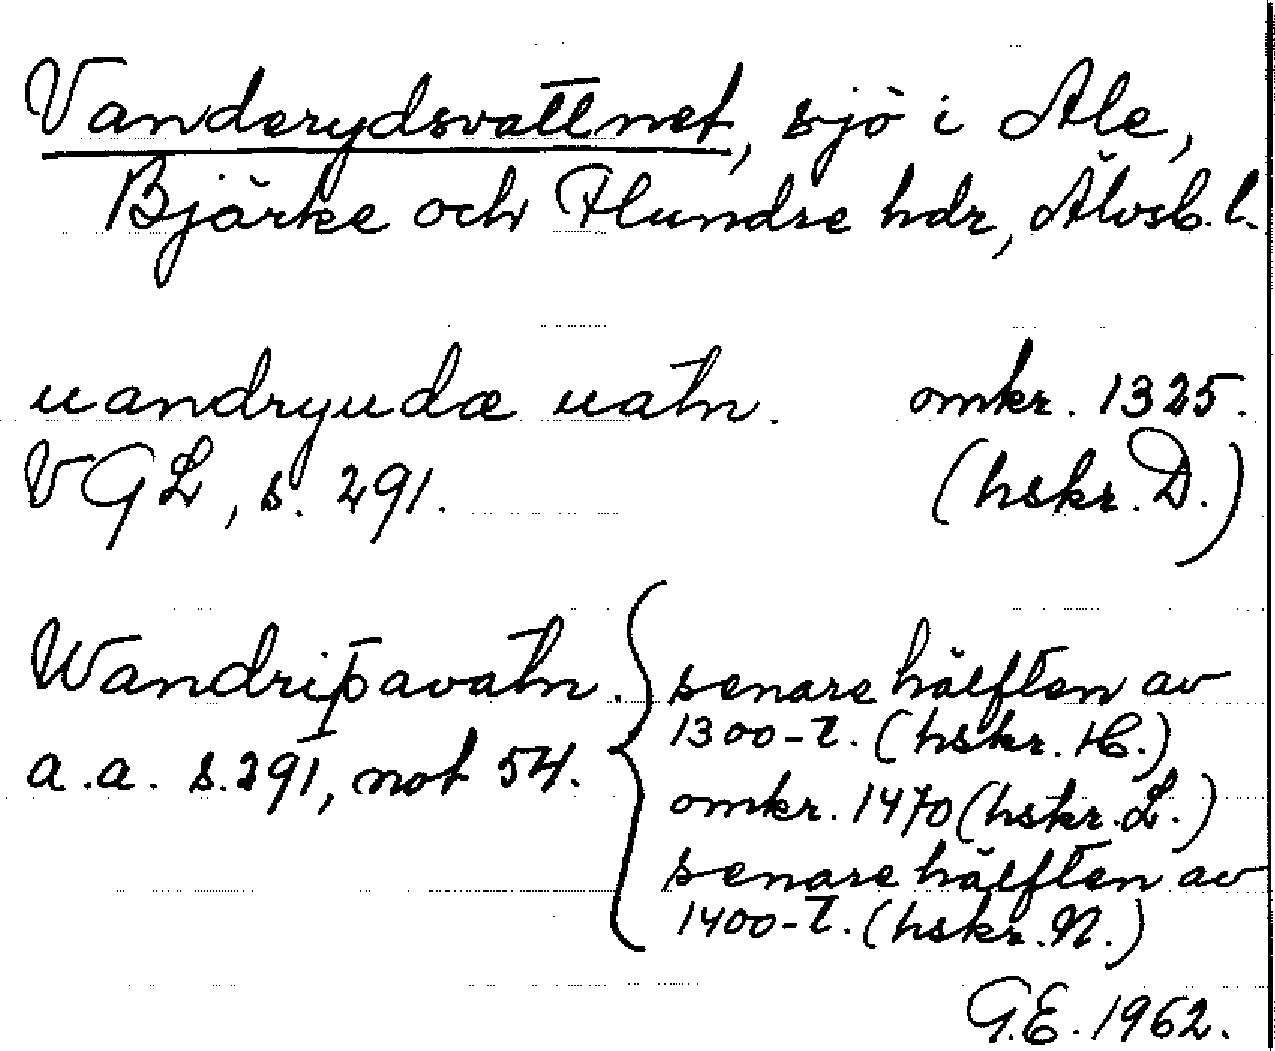 Vanderydsvattnet, sjö i Ale,
Bjärke och Flundre hdr, Älvsb. l.
uandryudæ uatn. omkr. 1325.
VGL, s. 291. (hskr. D.)
Wandriþavatn. senare hälften av
1300-t. (hskr. H.)
a.a. s. 291, not 54.
omkr. 1470 (hskr. L.)
senare hälften av
1400-t. (hskr. N.)
G.E. 1962.